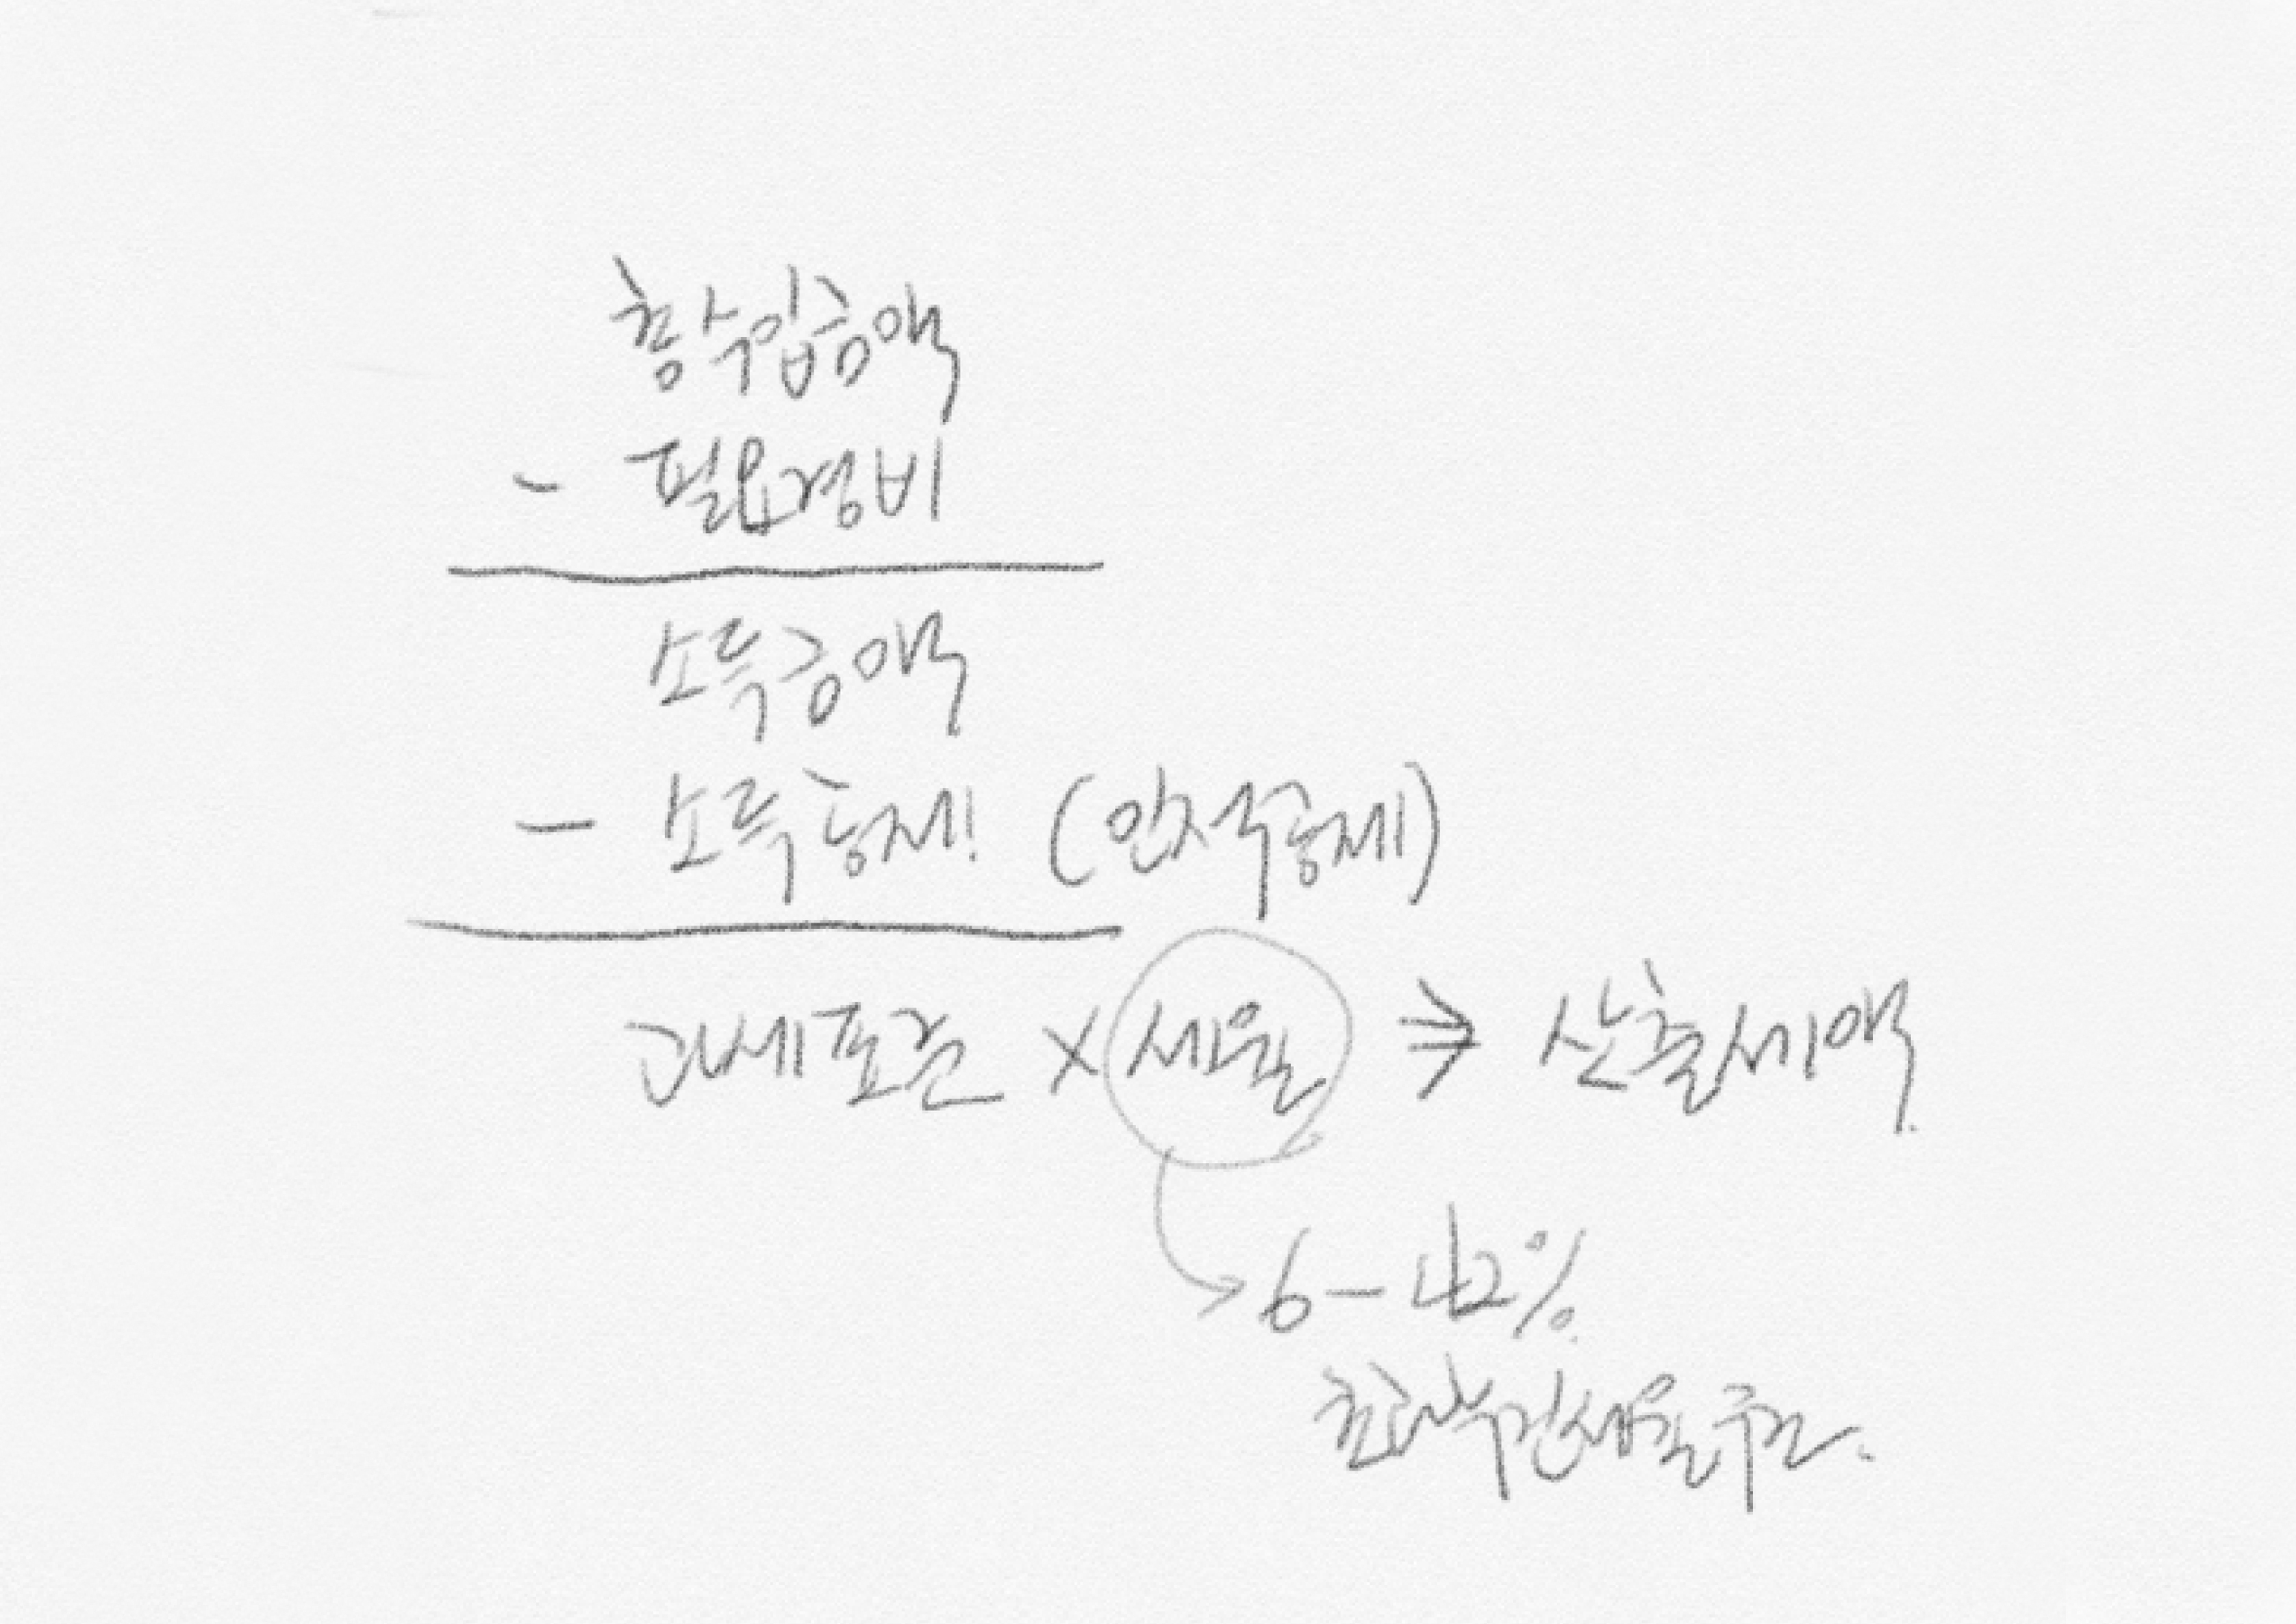 총수입금액
- 필요경비
소득금액
- 소득공제 (인적공제)
과세표준 × 세율 ⇒ 산출세액.
6-42%
초과누진세율구조.